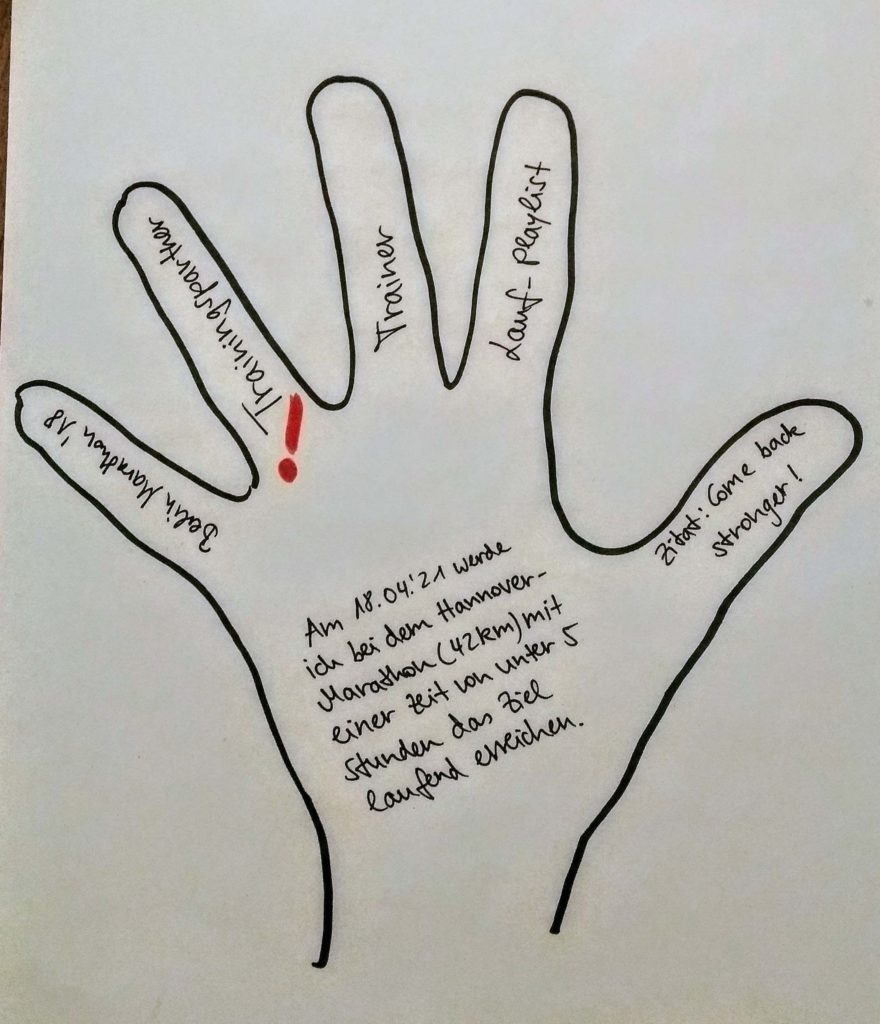 Berlin Marathon '18
Trainingspartner
!
Trainer
Lauf-Playlist
Zitat: Come back
stronger!
Am 18.04.'21 werde
ich bei dem Hannover-
Marathon (42km) mit
einer Zeit von unter 5
Stunden das Ziel
laufend erreichen.